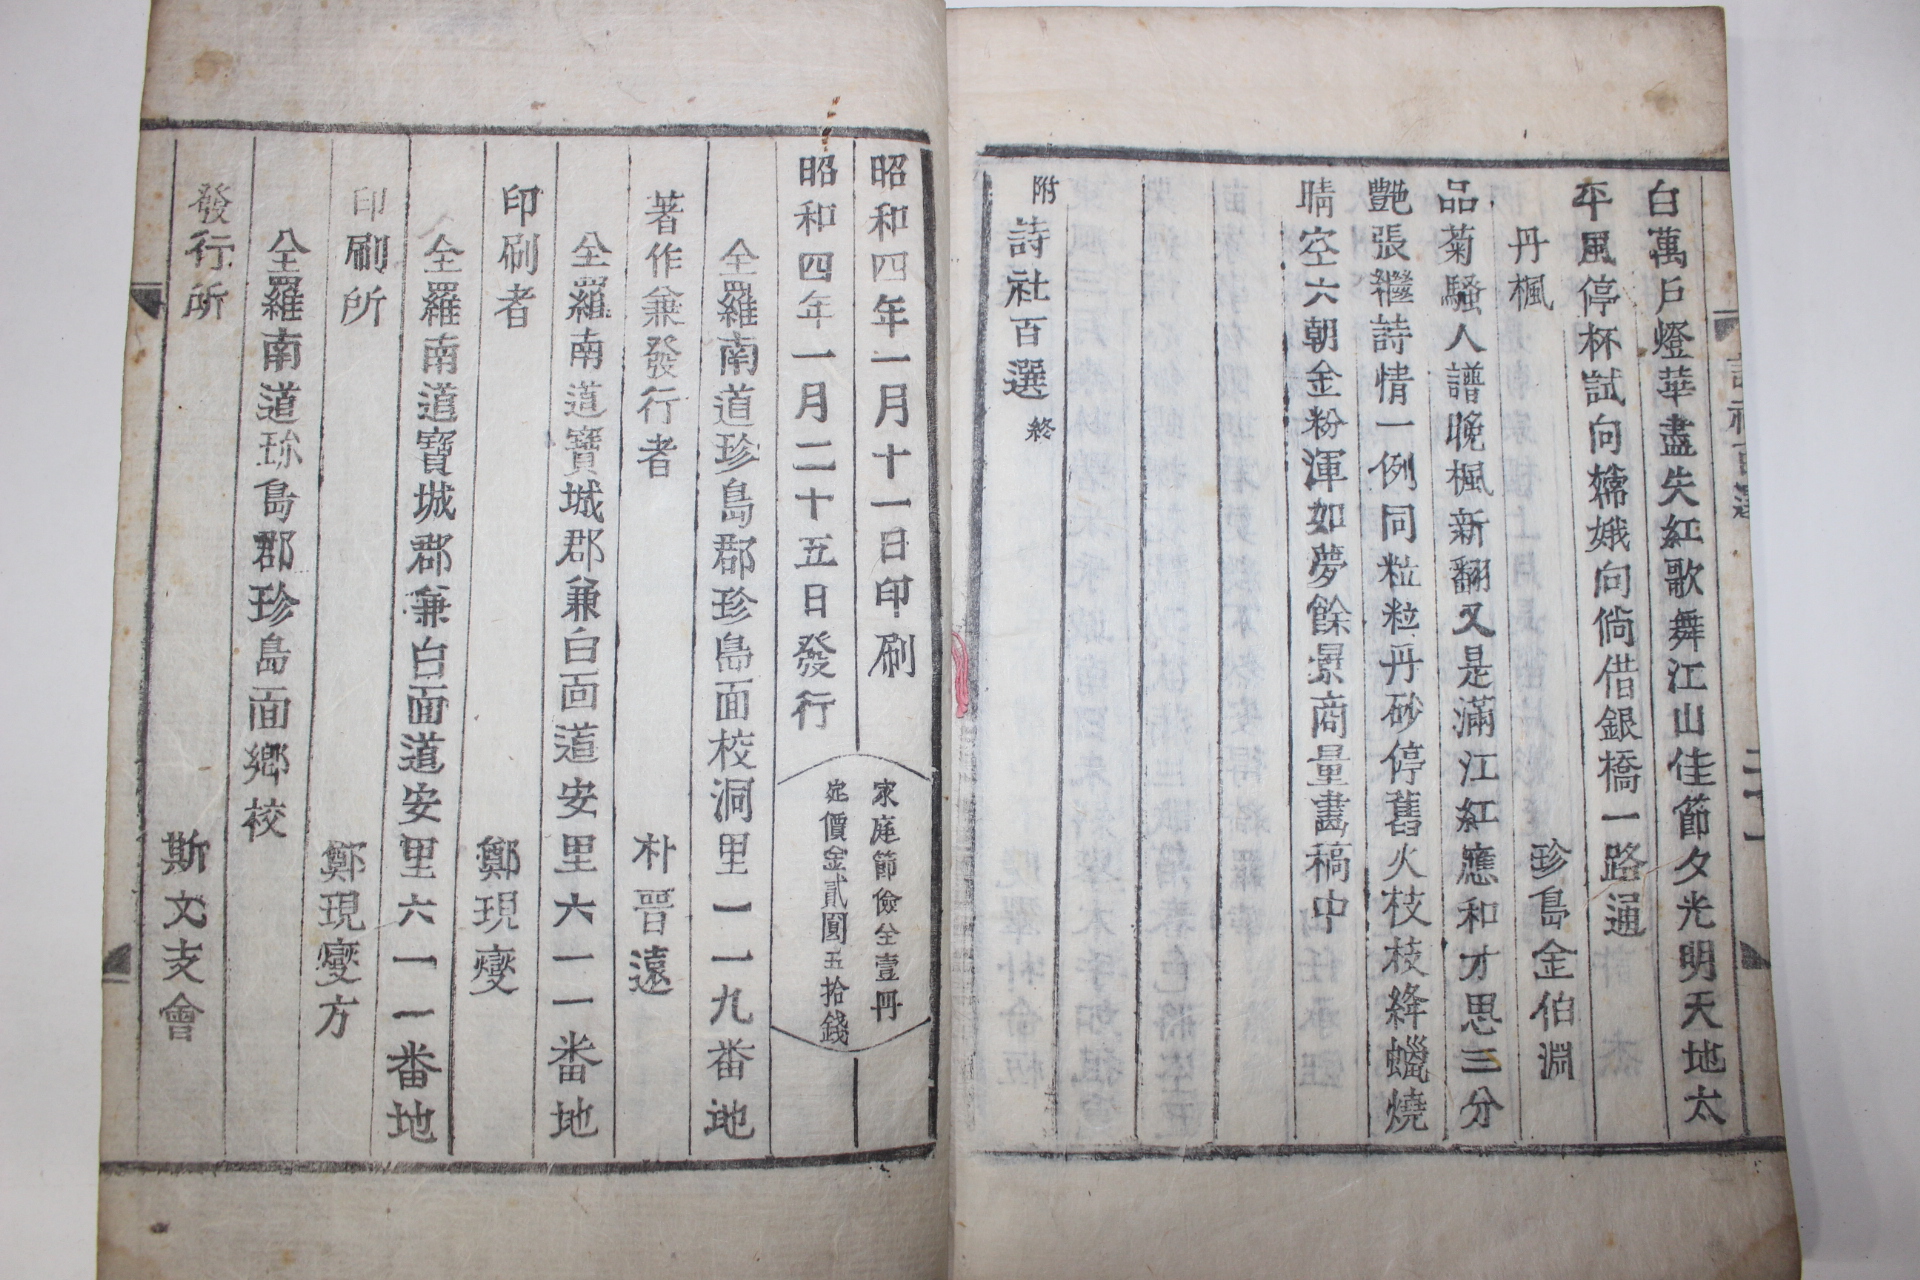 白萬戶燈華盡失紅歌舞江山佳節夕光明天地太
平風停杯試向嫦娥向倘借銀橋一路通
丹楓
珍島金伯淵
品菊騷人譜晚楓新翻又是滿江紅應和才思三分
艶張繼詩情一例同粒粒丹砂停舊火枝枝絳蠟燒
晴空六朝金粉渾如夢餘景商量畵稿中
附詩社百選終
昭和四年一月十一日印刷
昭和四年一月二十五日發行
家庭節儉全壹冊
定價金貳圓五拾錢
全羅南道珍島郡珍島面校洞里一一九番地
著作兼發行者 朴晋遠
全羅南道寶城郡兼白面道安里六一一番地
印刷者 鄭現燮
全羅南道寶城郡兼白面道安里六一一番地
印刷所 鄭現燮方
全羅南道珎島郡珍島面鄉校
發行所 斯文支會